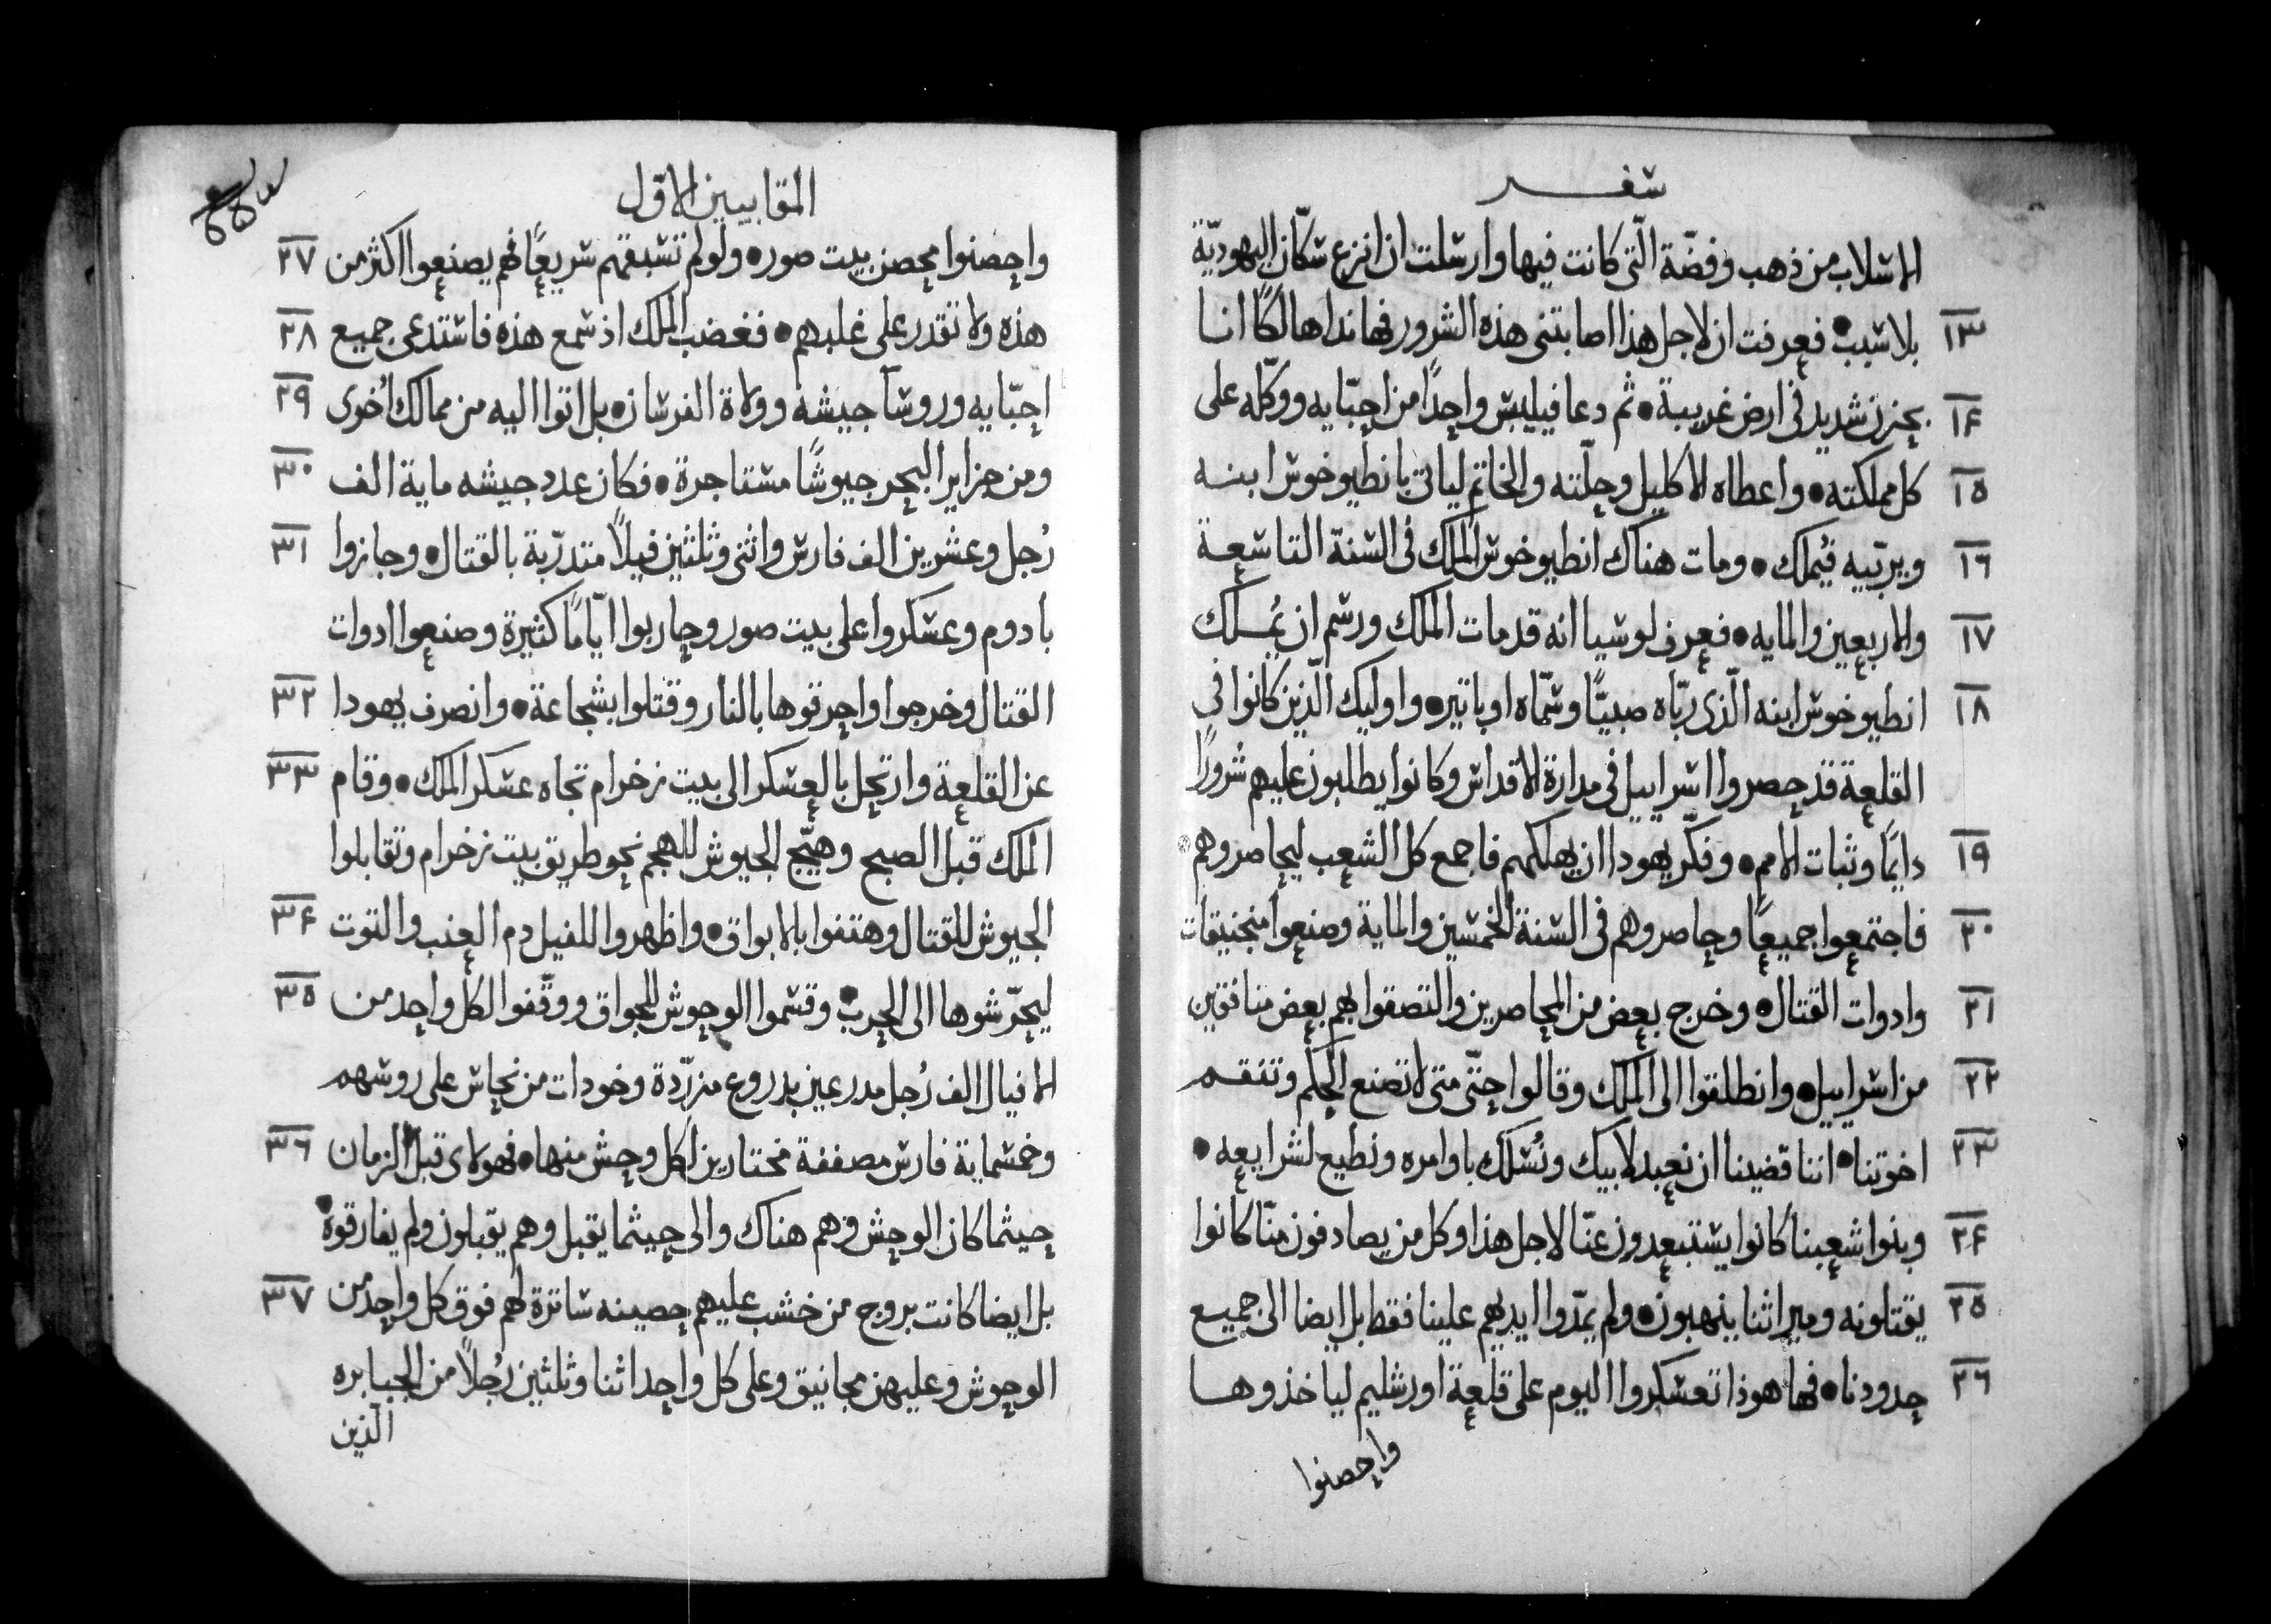 سفر
الاسلاب من ذهب وفضّة الّتى كانت فيها وارسلت ان انزع سكّان اليهوديّة
١٣ بلا سبب • فعرفت ان لاجل هذا اصابتنى هذه الشرور فهانذا هالكًا انا
١٤ بحزن شديد فى ارض غريبة • ثم دعا فيليبس واحدًا من احبّايه ووكّله على
١٥ كل مملكته • واعطاه الاكليل وحلّته والخاتم لياتى بانطيوخوس ابنه
١٦ ويربّيه فيُملك • ومات هناك انطيوخوس الملك فى السنة التاسعة
١٧ والاربعين والمايه • فعرف لوسيا انه قد مات الملك ورسم ان يُملك
١٨ انطيوخوس ابنه الّذى ربّاه صبيًّا وسمّاه اوباتير • واوليك الّذين كانوا فى
القلعة قد حصروا اسراييل فى مدارة الاقداس وكانوا يطلبون عليهم شرورًا
١٩ دايمًا وثبات الامم • وفكّر يهودا ان يهلكهم فاجمع كل الشعب ليحاصروهم •
٢٠ فاجتمعوا جميعًا وحاصروهم فى السنة الخمسين والماية وصنعوا منجنيقات
٢١ وادوات القتال • وخرج بعض من المحاصرين والتصقوا بهم بعض منافقين
٢٢ من اسراييل • وانطلقوا الى الملك وقالوا حتّى متى لا تصنع الحكم وتنتقم
٢٣ اخوتنا • اننا قضينا ان نعبد لابيك ونُسلك باوامره ونطيع لشرايعه •
٢٤ وبنوا شعبنا كانوا يستبعدون عنّا لاجل هذا وكل من يصادفون منّا كانوا
٢٥ يقتلونه وميراثنا ينهبون • ولم يمدّوا ايديهم علينا فقط بل ايضا الى جميع
٢٦ حدودنا • فها هوذا تعسكروا اليوم على قلعة اورشليم لياخذوها
واحصنوا
المقابيين الاوّل
واحصنوا محصن بيت صور • ولو لم تسبقهم سريعًا فهم يصنعوا اكثر من ٢٧
هذه ولا تقدر على غلبهم • فغضب الملك اذ سمع هذه فاستدعى جميع ٢٨
احبّايه وروسآ جيشه وولاة الفرسان • بل اتوا اليه من ممالك اُخرى ٢٩
ومن جزاير البحر جيوشًا مستاجرة • فكان عدد جيشه ماية الف ٣٠
رُجل وعشرين الف فارس واثنى وثلثين فيلاً متدرّبة بالقتال • وجازوا ٣١
بادوم وعسكروا على بيت صور وحاربوا ايّامًا كثيرة وصنعوا ادوات
القتال وخرجوا واحرقوها بالنار وقتلوا بشجاعة • وانصرف يهودا ٣٢
عن القلعة وارتحل بالعسكر الى بيت زخرام تجاه عسكر الملك • وقام ٣٣
الملك قبل الصبح وهيّج الجيوش للهجم نحو طريق بيت زخرام وتقابلوا
الجيوش للقتال وهتفوا بالابواق • واظهروا للفيل دم العنب والتوت ٣٤
ليحرّشوها الى الحرب • وقسموا الوحوش للجواق ووقّفوا لكل واحد من ٣٥
الافيال الف رُجل مدرعين بدروع مزرّدة وخودات من نحاس على روسهم
وخمسماية فارس مصففة مختارين لكل وحش منها • فهولاى قبل الزمان ٣٦
حيثما كان الوحش فهم هناك والى حيثما يقبل وهم يقبلون ولم يفارقوه •
بل ايضا كانت بروج من خشب عليهم حصينه ساترة لهم فوق كل واحد من ٣٧
الوحوش وعليهن مجانيق وعلى كل واحد اثنا وثلثين رُجلاً من الجبابره
الّذين